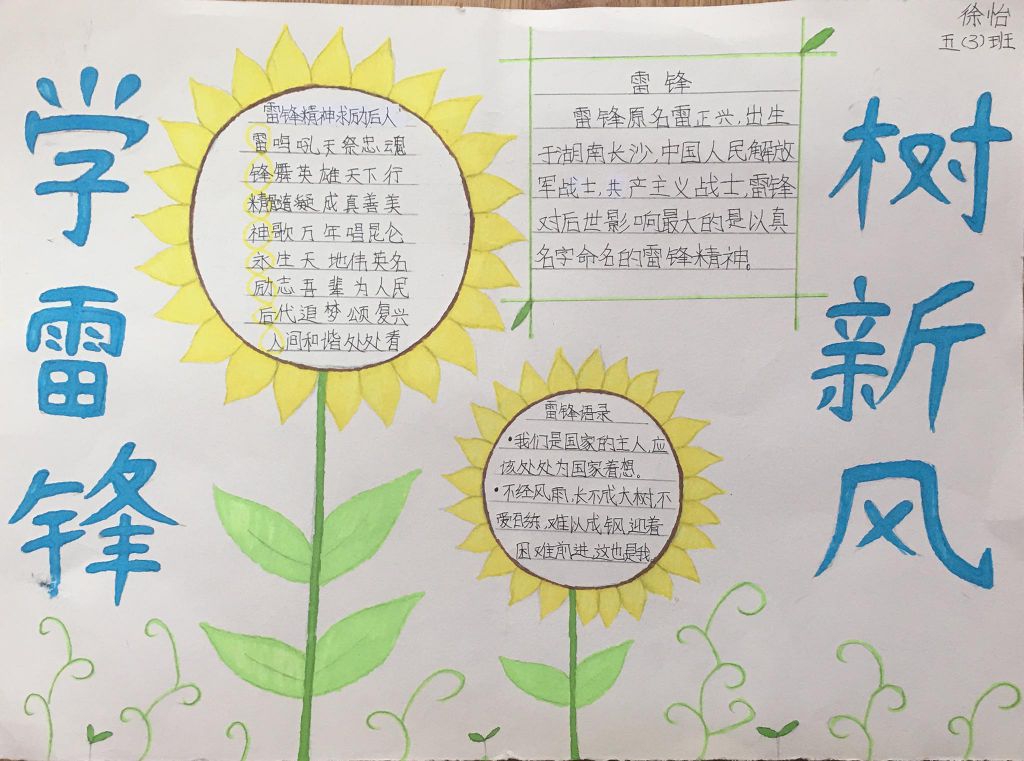 徐怡
五(3)班
学雷锋
树新风
雷锋精神永励后人
雷鸣吼天祭忠魂
锋舞英雄天下行
精髓凝成真善美
神歌万年唱昆仑
永生天地伟英名
励志吾辈为人民
后代追梦颂复兴
人间和谐处处春
雷锋
雷锋原名雷正兴,出生
于湖南长沙,中国人民解放
军战士,共产主义战士,雷锋
对后世影响最大的是以真
名字命名的雷锋精神。
雷锋语录
•我们是国家的主人,应
该处处为国家着想。
•不经风雨,长不成大树,不
受百练,难以成钢,迎着
困难前进,这也是我